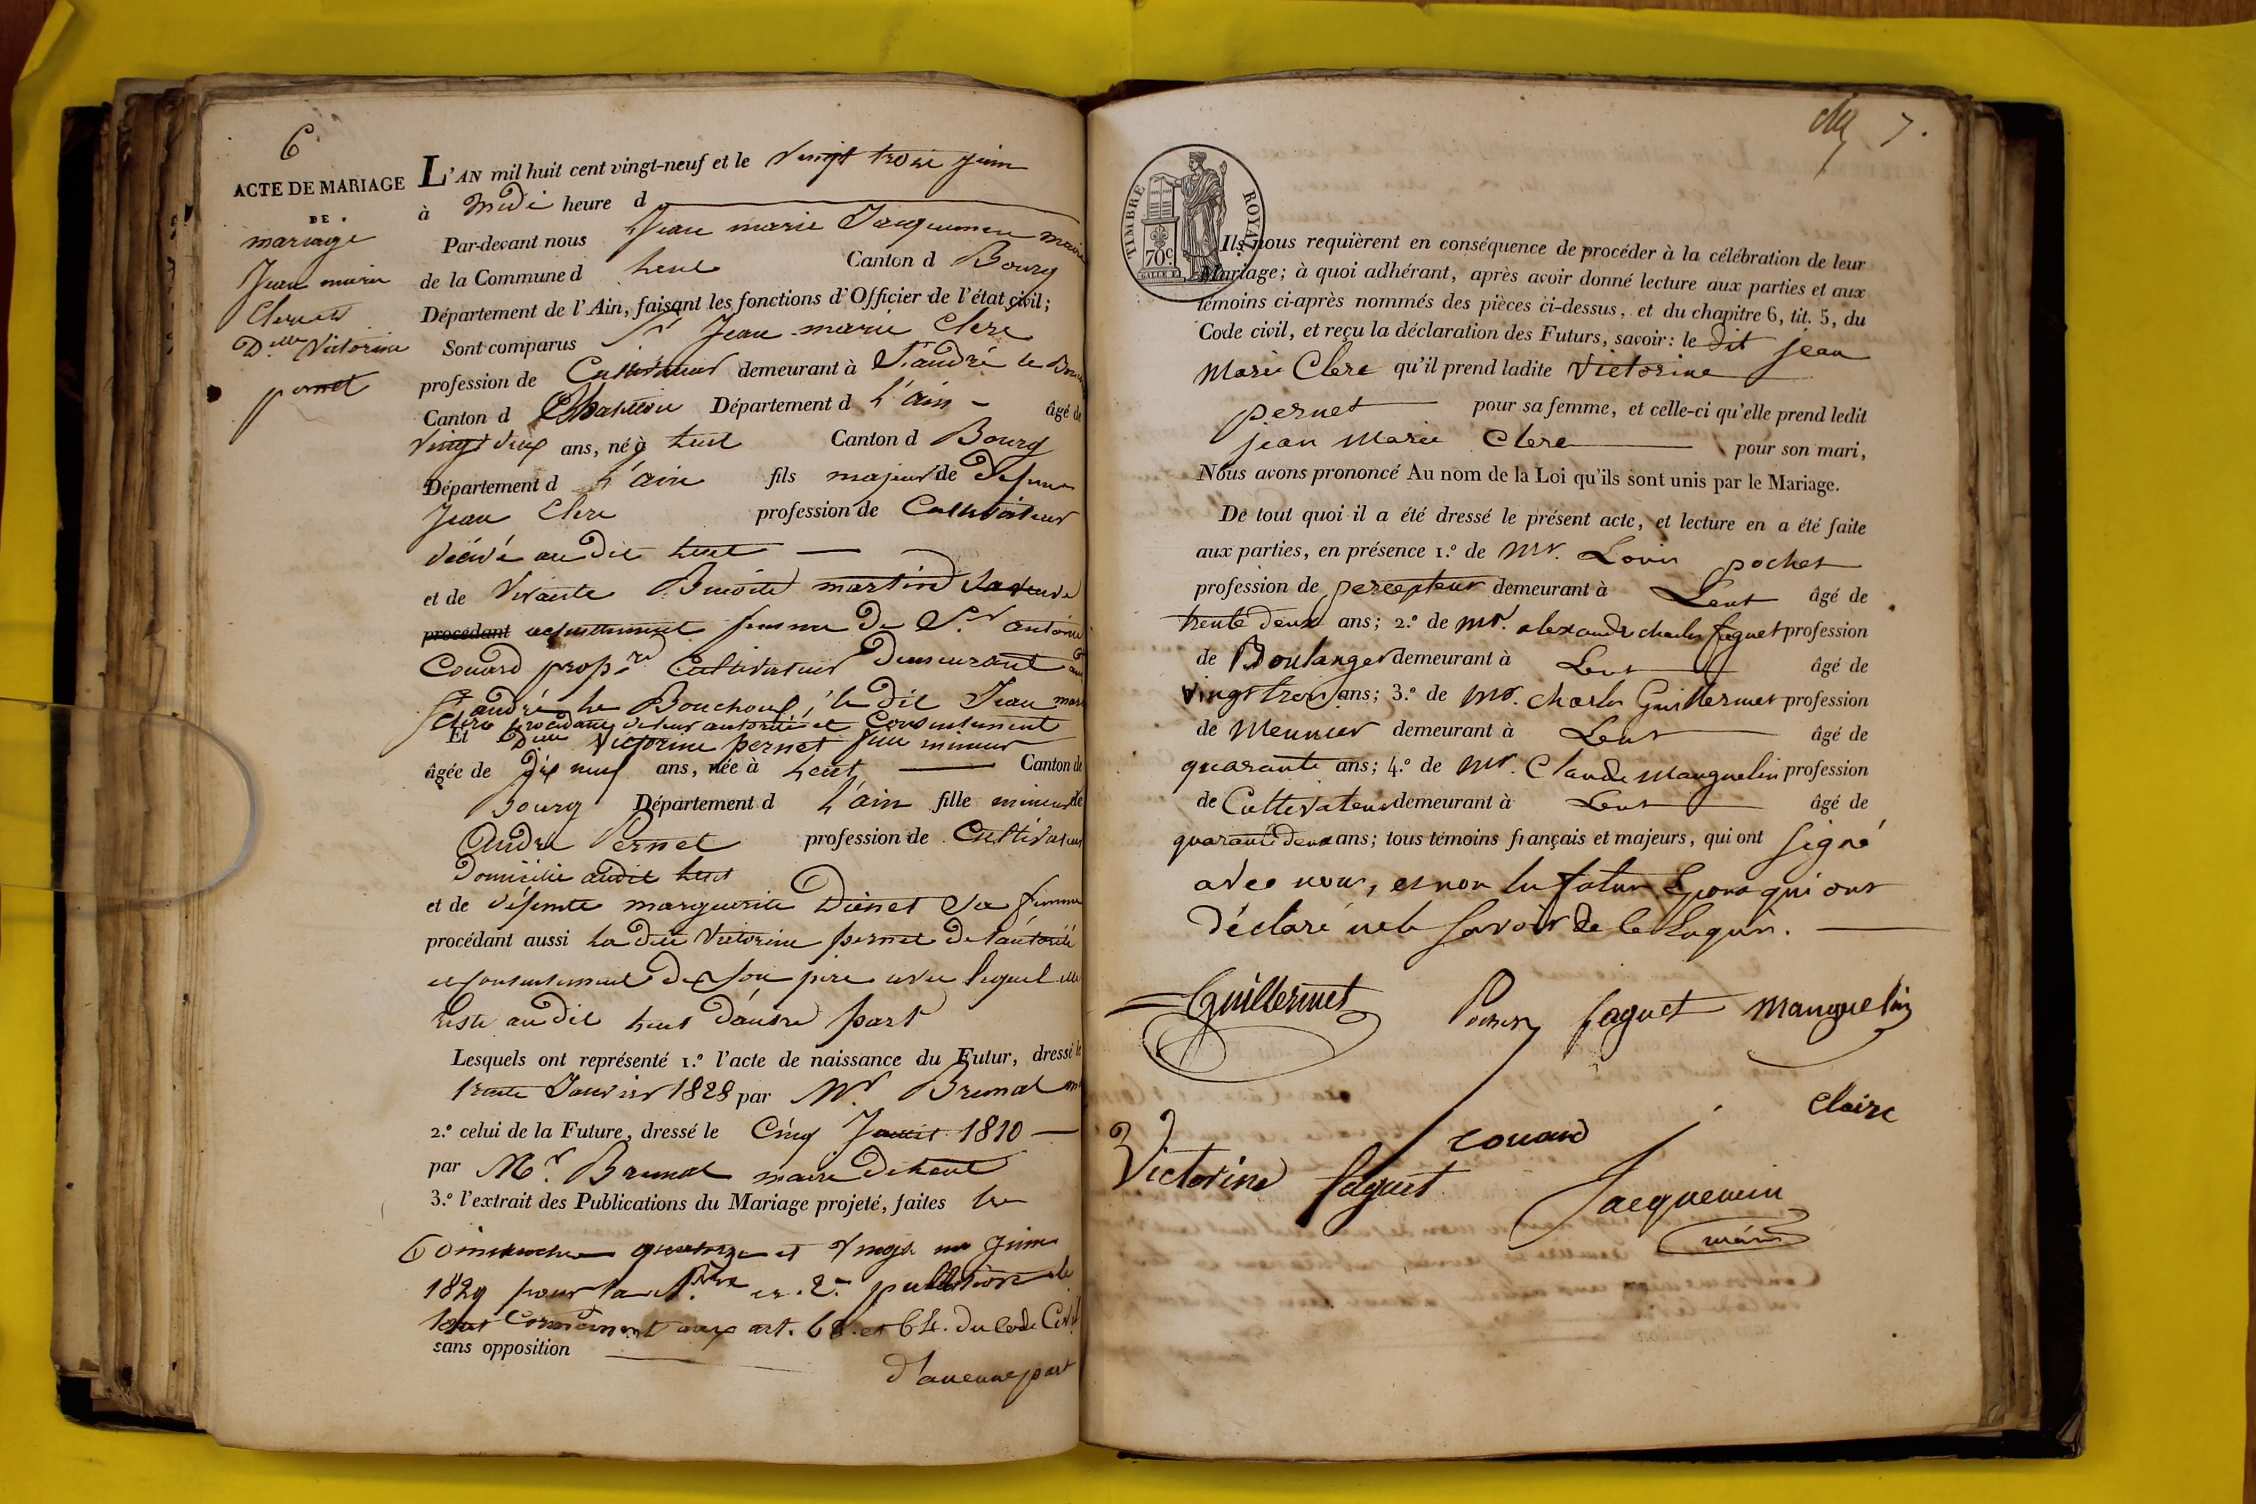 6
ACTE DE MARIAGE
DE
mariage
Jean marie
Clerc et
D.elle Victorine
pernet
L'AN mil huit cent vingt-neuf et le Vingt trois juin
à Midi heure d
Par-devant nous Jean marie Jacquemin maire
de la Commune d Lent Canton d Bourg
Département de l'Ain, faisant les fonctions d'Officier de l'état civil;
Sont comparus Sr Jean marie Clerc
profession de Cultivateur demeurant à St andré le Bou
Canton d Département d L'ain âgé de
Vingt deux ans, né à Lent Canton d Bourg
Département d L'ain fils majeur de Defunt
Jean Clerc profession de Cultivateur
décédé audit Lent
et de Vivante Benoite martin sa veuve
procédant actuellement femme de Sr antoine
Couard prop.re Cultivateur Demeurant au
St andré le Bouchoux, le dit Jean marie
Clerc procédant de leur autorité et Consentement
Et D.elle Victorine pernet fille mineur
âgée de Dix neuf ans, née à Lent Canton de
Bourg Département d L'ain fille mineur de
André Pernet profession de Cultivateur
Domicilié audit Lent
et de défunte marguerite sa femme
procédant aussi La dite Victorine pernet de l'autorité
et consentement de son père avec lequel elle
reste audit Lent d'autre part
Lesquels ont représenté 1.º l'acte de naissance du Futur, dressé le
trente Janvier 1828 par Mr.
2.º celui de la Future, dressé le Cinq 1810
par Mr. maire de Lent
3.º l'extrait des Publications du Mariage projeté, faites Les
Dimanches quatorze et Vingt un juin
1829 pour la 1.ère et 2.e publication le
tout Conformément aux art. 63 et 64. du Code Civil
sans opposition
d'aucune part
7.
TIMBRE ROYAL
70 c.
Ils nous requièrent en conséquence de procéder à la célébration de leur
Mariage; à quoi adhérant, après avoir donné lecture aux parties et aux
témoins ci-après nommés des pièces ci-dessus, et du chapitre 6, tit. 5, du
Code civil, et reçu la déclaration des Futurs, savoir: le dit jean
Marie Clerc qu'il prend ladite Victorine
pernet pour sa femme, et celle-ci qu'elle prend ledit
jean Marie Clerc pour son mari,
Nous avons prononcé Au nom de la Loi qu'ils sont unis par le Mariage.
De tout quoi il a été dressé le présent acte, et lecture en a été faite
aux parties, en présence 1.º de Mr. Louis pochet
profession de percepteur demeurant à Lent âgé de
trente deux ans; 2.º de Mr. alexandre charles faguet profession
de Boulanger demeurant à Lent âgé de
Vingt trois ans; 3.º de Mr. Charles Guillermet profession
de Meunier demeurant à Lent âgé de
quarante ans; 4.º de Mr. Claude Manguelin profession
de Cultivateur demeurant à Lent âgé de
quarante deux ans; tous témoins français et majeurs, qui ont signé
avec nous, et non les futurs Epoux qui ont
déclaré ne le savoir de ce requis.
Guillermet Pochet faguet Manguelin
Claire
couard
Victorine faguet Jacquemin
maire